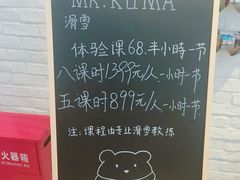 MR.KUMA
滑雪
体验课68.半小时一节
八课时1399元/人一小时一节
五课时899元/人一小时一节
注:课程由专业滑雪教练
火器箱